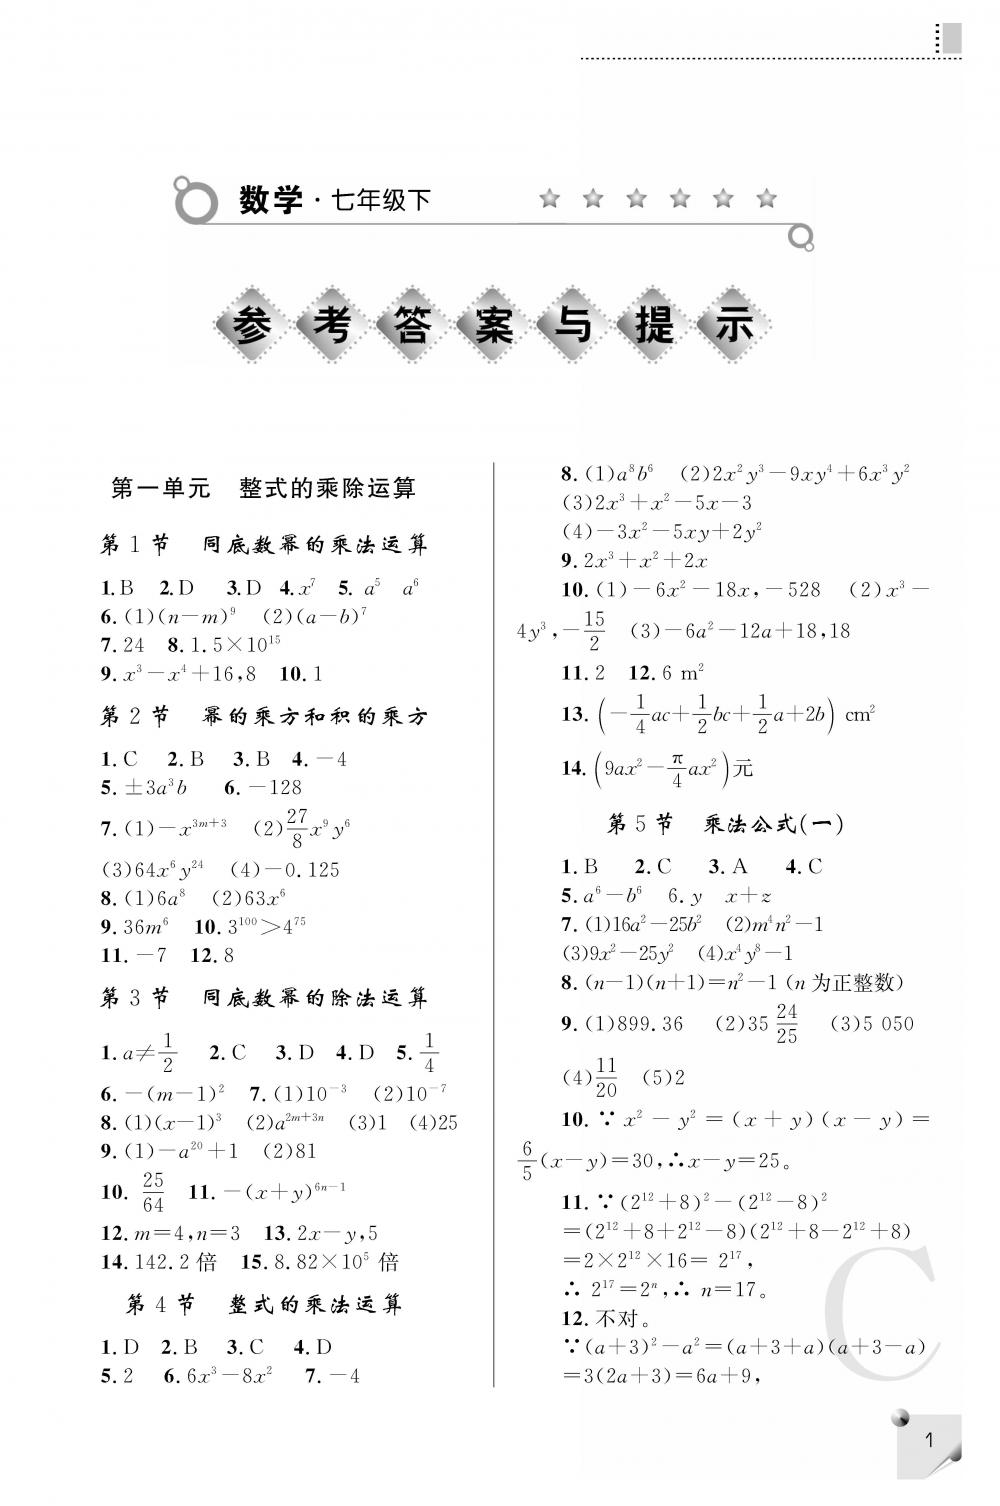 数学·七年级下
参考答案与提示
第一单元　整式的乘除运算
第 1 节　同底数幂的乘法运算
1.B　2.D　3.D　4.x⁷　5. a⁵　a⁶
6.(1)(n－m)⁹　(2)(a－b)⁷
7.24　8.1.5×10¹⁵
9.x³－x⁴＋16,8　10.1
第 2 节　幂的乘方和积的乘方
1.C　2.B　3.B　4.－4
5.±3a³b　6.－128
7.(1)－x³ᵐ⁺³　(2)27/8 x⁹y⁶
(3)64x⁶y²⁴　(4)－0.125
8.(1)6a⁸　(2)63x⁶
9.36m⁶　10.3¹⁰⁰＞4⁷⁵
11.－7　12.8
第 3 节　同底数幂的除法运算
1.a≠1/2　2.C　3.D　4.D　5.1/4
6.－(m－1)²　7.(1)10⁻³　(2)10⁻⁷
8.(1)(x－1)³　(2)a²ᵐ⁺³ⁿ　(3)1　(4)25
9.(1)－a²⁰＋1　(2)81
10. 25/64　11.－(x＋y)⁶ⁿ⁻¹
12.m＝4,n＝3　13.2x－y,5
14.142.2 倍　15.8.82×10⁵ 倍
第 4 节　整式的乘法运算
1.D　2.B　3.C　4.D
5.2　6.6x³－8x²　7.－4
8.(1)a⁸b⁶　(2)2x²y³－9xy⁴＋6x³y²
(3)2x³＋x²－5x－3
(4)－3x²－5xy＋2y²
9.2x³＋x²＋2x
10.(1)－6x²－18x,－528　(2)x³－
4y³,－15/2　(3)－6a²－12a＋18,18
11.2　12.6 m²
13.(－1/4 ac＋1/2 bc＋1/2 a＋2b) cm²
14.(9ax²－π/4 ax²)元
第 5 节　乘法公式(一)
1.B　2.C　3.A　4.C
5.a⁶－b⁶　6.y　x＋z
7.(1)16a²－25b²　(2)m⁴n²－1
(3)9x²－25y²　(4)x⁴y⁸－1
8.(n－1)(n＋1)＝n²－1 (n 为正整数)
9.(1)899.36　(2)35 24/25　(3)5 050
(4)11/20　(5)2
10.∵ x²－y²＝(x＋y)(x－y)＝
6/5(x－y)＝30,∴x－y＝25。
11.∵(2¹²＋8)²－(2¹²－8)²
＝(2¹²＋8＋2¹²－8)(2¹²＋8－2¹²＋8)
＝2×2¹²×16＝ 2¹⁷,
∴ 2¹⁷＝2ⁿ,∴ n＝17。
12.不对。
∵(a＋3)²－a²＝(a＋3＋a)(a＋3－a)
＝3(2a＋3)＝6a＋9,
C
1